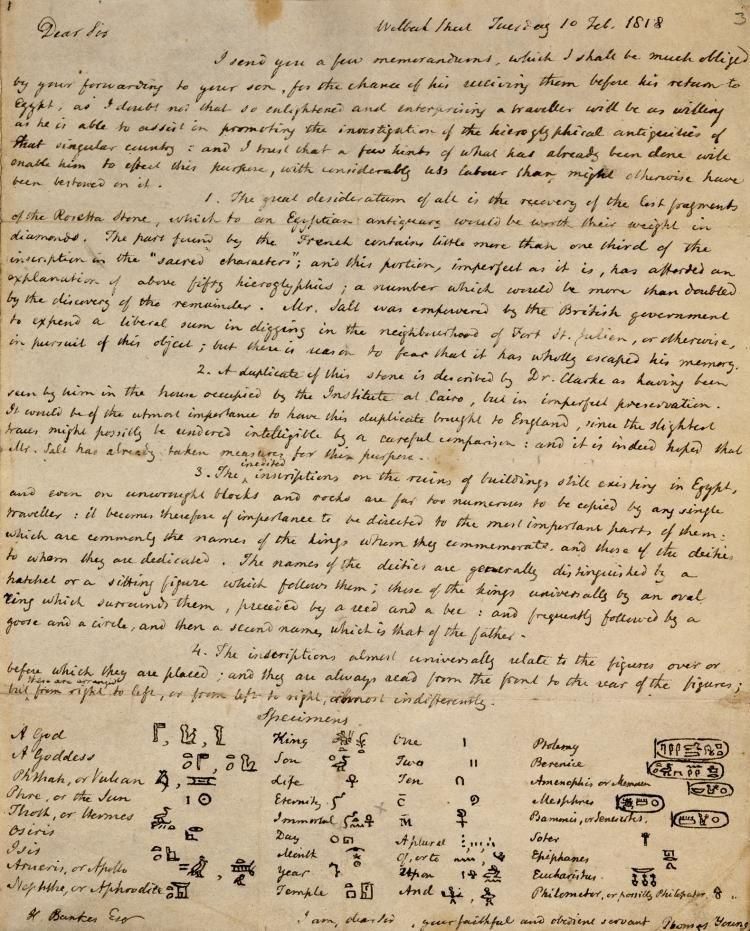 3
Welbeck Street Tuesday 10 Feb. 1818
Dear Sir
I send you a few memorandums, which I shall be much obliged
by your forwarding to your son, for the chance of his receiving them before his return to
Egypt; as I doubt not that so enlightened and enterprising a traveller will be as willing
as he is able to assist in promoting the investigation of the hieroglyphical antiquities of
that singular country: and I trust that a few hints of what has already been done will
enable him to effect this purpose, with considerably less labour than might otherwise have
been bestowed on it.
1. The great desideratum of all is the recovery of the lost fragments
of the Rosetta Stone, which to an Egyptian antiquary would be worth their weight in
diamonds. The part found by the French contains little more than one third of the
inscription in the "sacred characters"; and this portion, imperfect as it is, has afforded an
explanation of above fifty hieroglyphics; a number which would be more than doubled
by the discovery of the remainder. Mr. Salt was empowered by the British government
to expend a liberal sum in digging in the neighbourhood of Fort St. Julien, or otherwise,
in pursuit of this object; but there is reason to fear that it has wholly escaped his memory.
2. A duplicate of this stone is described by Dr. Clarke as having been
seen by him in the house occupied by the Institute at Cairo, but in imperfect preservation.
It would be of the utmost importance to have this duplicate brought to England, since the slightest
traces might possibly be rendered intelligible by a careful comparison: and it is indeed hoped that
Mr. Salt has already taken measures for this purpose.
3. The inedited inscriptions on the ruins of buildings still existing in Egypt,
and even on unwrought blocks and rocks are far too numerous to be copied by any single
traveller: it becomes therefore of importance to be directed to the most important parts of them:
which are commonly the names of the kings whom they commemorate, and those of the deities
to whom they are dedicated. The names of the deities are generally distinguished by a
hatchet or a sitting figure which follows them; those of the kings universally by an oval
ring which surrounds them, preceded by a reed and a bee: and frequently followed by a
goose and a circle, and then a second name, which is that of the father.
4. The inscriptions almost universally relate to the figures over or
before which they are placed; and they are always read from the front to the rear of the figures;
but these are arranged from right to left, or from left to right, almost indifferently.
Specimens
A God King One Ptolemy
A Goddess Son Two Berenice
Phthah, or Vulcan Life Ten Amenophis or Memnon
Phre, or the Sun Eternity C̄. Mesphres
Thoth, or Hermes Immortal M̄ Bammis, or
Osiris Day A plural Soter
Isis Month Of, or to Epiphanes
Arueris, or Apollo Year Upon Eucharistus
Nephthe, or Aphrodite Temple And Philometor, or possibly Philopator
H Bankes Esqr I am, dear Sir, your faithful and obedient servant Thomas Young